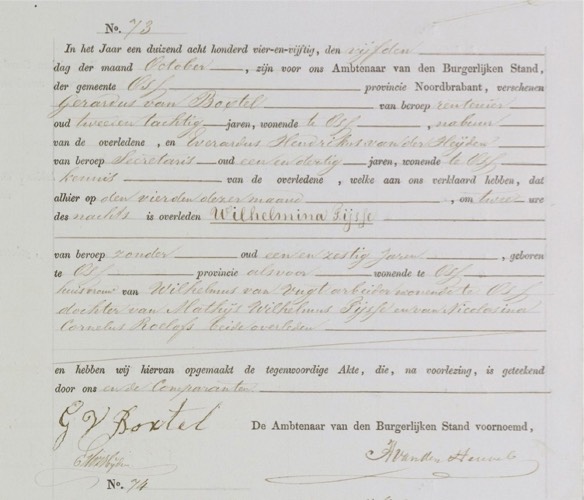 No. 73
In het Jaar een duizend acht honderd vier-en-vijftig, den vijfden
dag der maand October, zijn voor ons Ambtenaar van den Burgerlijken Stand,
der gemeente Oss provincie Noordbrabant, verschenen
Gerardus van Boxtel van beroep rentenier
oud twee en tachtig jaren, wonende te Oss, nabuur
van de overledene, en Everardus Hendrikus van der Heijden
van beroep Secretaris oud een en dertig jaren, wonende te Oss
kennis van de overledene, welke aan ons verklaard hebben, dat
alhier op den vierden dezer maand, om twee ure
des nachts is overleden Wilhelmina Pijsse
van beroep zonder oud een en zestig jaren, geboren
te Oss provincie alsvoor wonende te Oss
huisvrouw van Wilhelmus van Vugt arbeider wonende te Oss
dochter van Mathijs Wilhelmus Pijsse en van Nicolasina
Cornelus Roelofs beide overleden
en hebben wij hiervan opgemaakt de tegenwoordige Akte, die, na voorlezing, is geteekend
door ons en de Comparanten
G V Boxtel
De Ambtenaar van den Burgerlijken Stand voornoemd,
No. 74